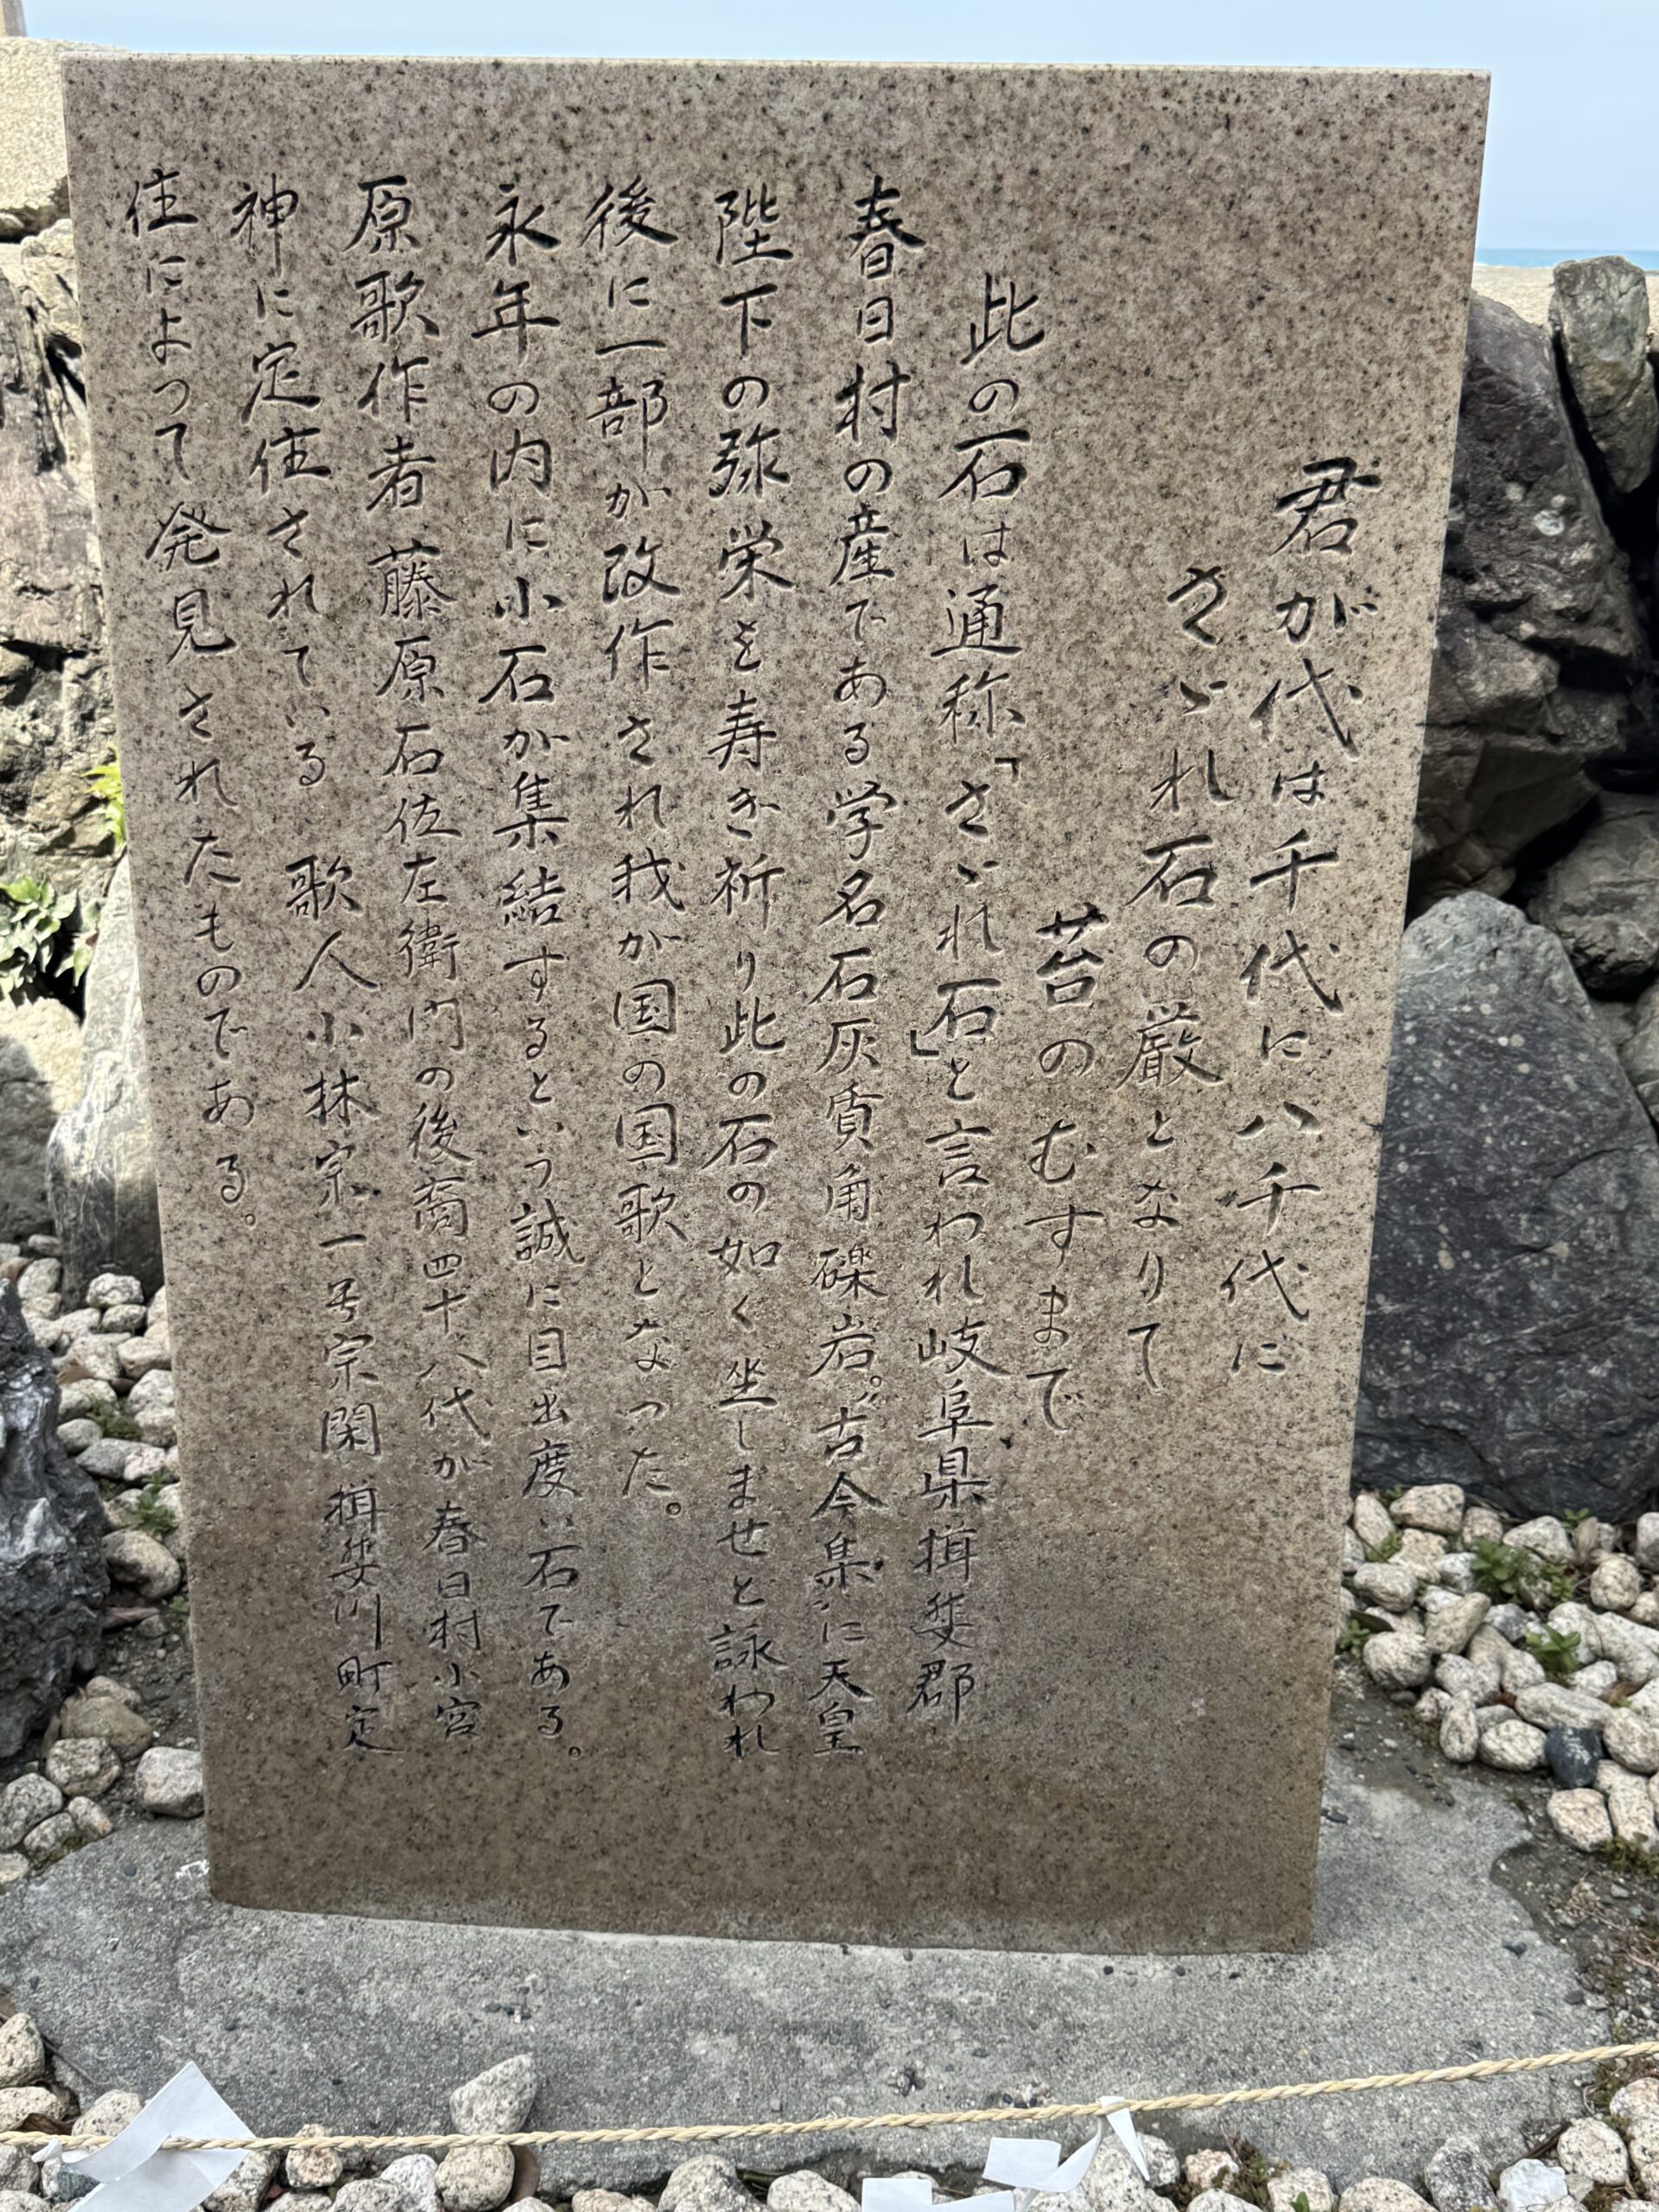 君が代は千代に八千代に
さゞれ石の巌となりて
苔のむすまで
此の石は通称「さゞれ石」と言われ岐阜県揖斐郡
春日村の産である学名石灰質角礫岩。〝古今集〟に天皇
陛下の弥栄を寿ぎ祈り此の石の如く坐しませと詠われ
後に一部が改作され我が国の国歌となった。
永年の内に小石が集結するという誠に目出度い石である。
原歌作者藤原石位左衛門の後裔四十八代が春日村小宮
神に定住されている 歌人小林宗一号宗閑揖斐川町定
住によって発見されたものである。